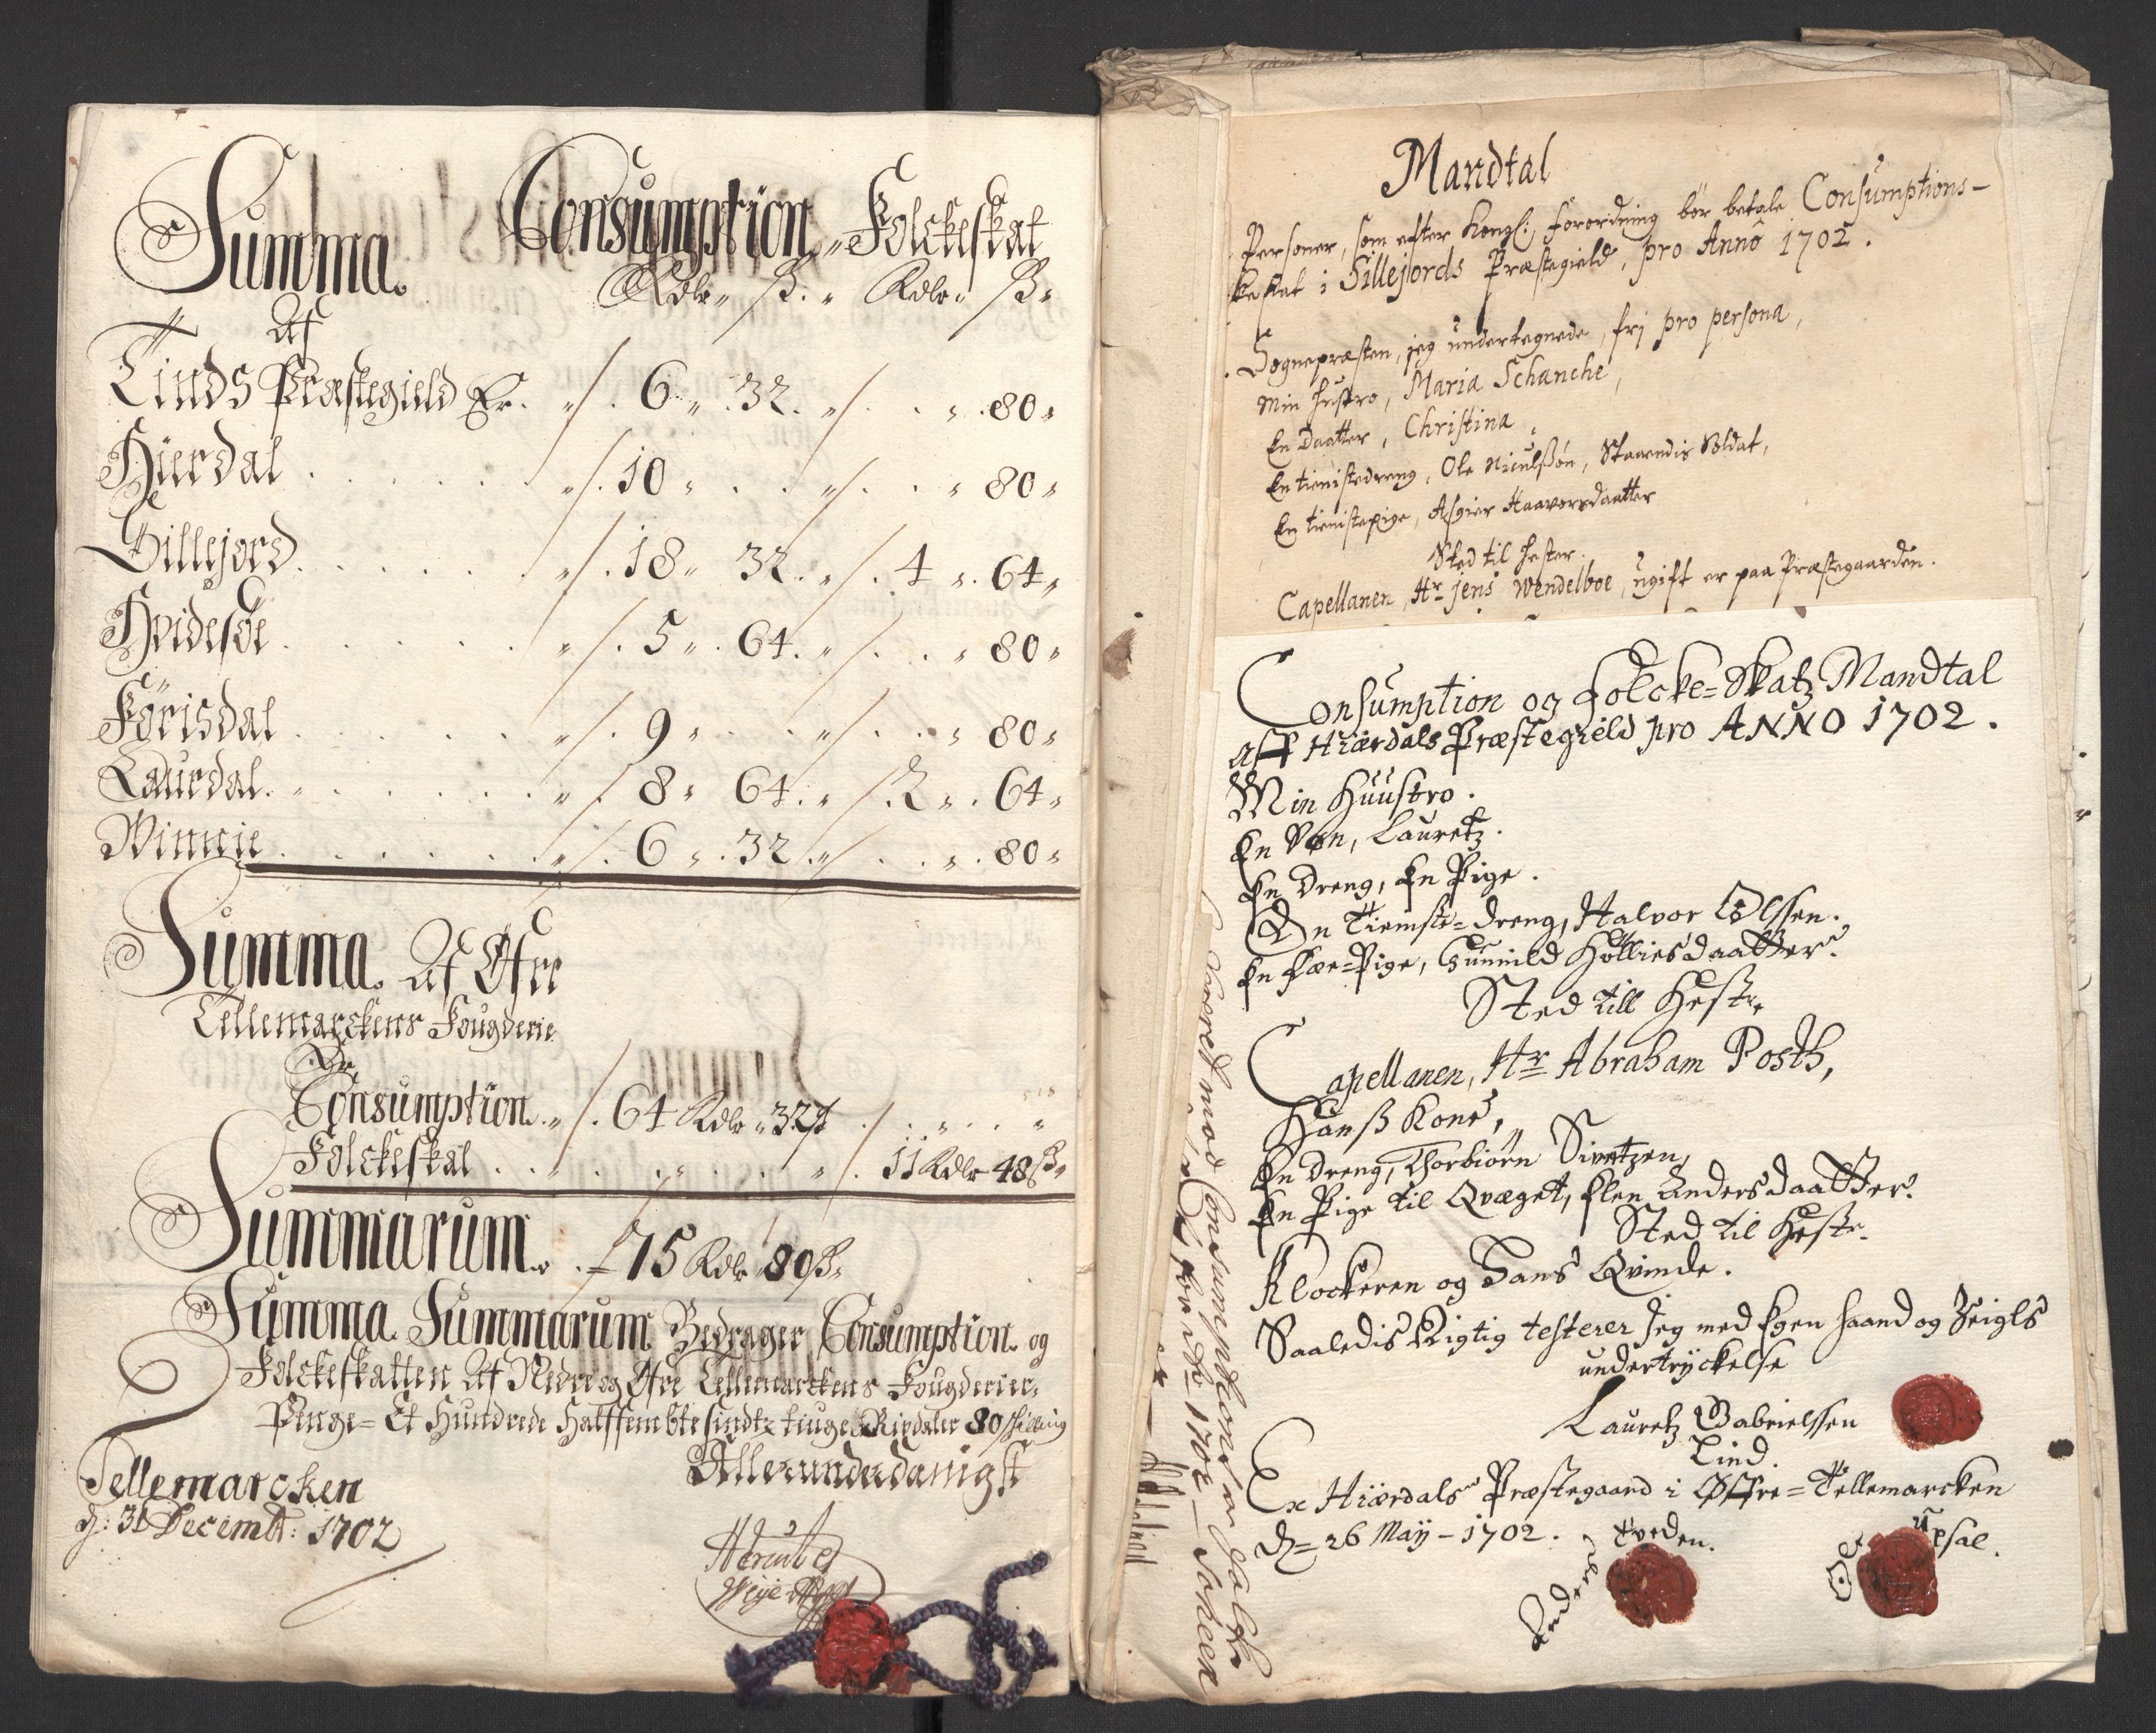 Summa. Consumption „ Folckeskat
Rdlr „ ß. „ Rdlr „ ß „
Af
Tinds Præstegield Er. „ 6 „ 32. „ . . „ . 80 „
Hierdal . . . . . „ . 10 „ . . „ . . „ 80 „
Sillejord . . . . . „ . 18 „ 32. „ . 4 „ . 64 „
Hvidesøe . . . . . „ . 5 „ . 64. „ . . „ 80 „
Førisdal . . . . . „ . 9 „ . . „ . . „ 80 „
Laurdal . . . . . „ . 8 „ 64. „ . 2 „ . 64 „
Winnie . . . . . „ . 6 „ . 32 . „ . . „ . 80 „
Summa. Af Øfre
Tellemarckens Fougderie
Er,
Consumption. „ . 64 Rdlr „ 32 ß
Folckeskat . . „ . . „ . 11 Rdlr 48 ß „
Summarum. . 75 Rdlr 80 ß „
Summa Summarum Bedrager Consumption. og
Folckeskatten Af Nedre og Øfre Tellemarckens Fougderier,
Penge = Et Hundrede Halffembtesindtz tiuge Rixdaler 80 skilling
Allerunderdanigst
Tellemarcken
d: 31 Decembr: 1702
Mandtal
Personer, som efter Kongl: Forordning bør betale Consumptions-
skat i Sillejords Præstegield, pro Anno 1702.
Sognepræsten, jeg undertegnede, frj pro persona,
Min Hustro, Maria Schanche,
En Daatter, Christina,
En tienistedreng, Ole Niculßøn, Staaendis Soldat,
En tienistepige, Asgier Haavorsdaatter
Sted til Hester.
Capellanen, Hr Jens Wendelboe, ugift er paa Præstegaarden.
Consumption og Folcke=Skatz Mandtal
aff Hiærdals Præstegield pro ANNO 1702.
Min Huustro.
En Søn, Lauretz.
En Dreng, En Pige.
En Tieniste=Dreng, Halvor Olssen.
En Fæe=Pige, Gunnild Hollies daatter.
Sted till Heste.
Capellanen, Hr Abraham Posth,
Hanß Kone,
En Dreng, Thorbiørn Sivertzen,
En Pige til Qvæget, Elen Anders daatter.
Sted til Heste.
Klockeren og Hans Qvinde.
Saaledis Rigtig testerer Jeg med Egen Haand og Zeigls
undertryckelse
Lauretz Gabrielssen
Lind.
Ex Hiærdals Præstegaard i Øffre=Tellemarcken
d= 26 Maij - 1702.
Anders Tveden.
Ole Upsal.